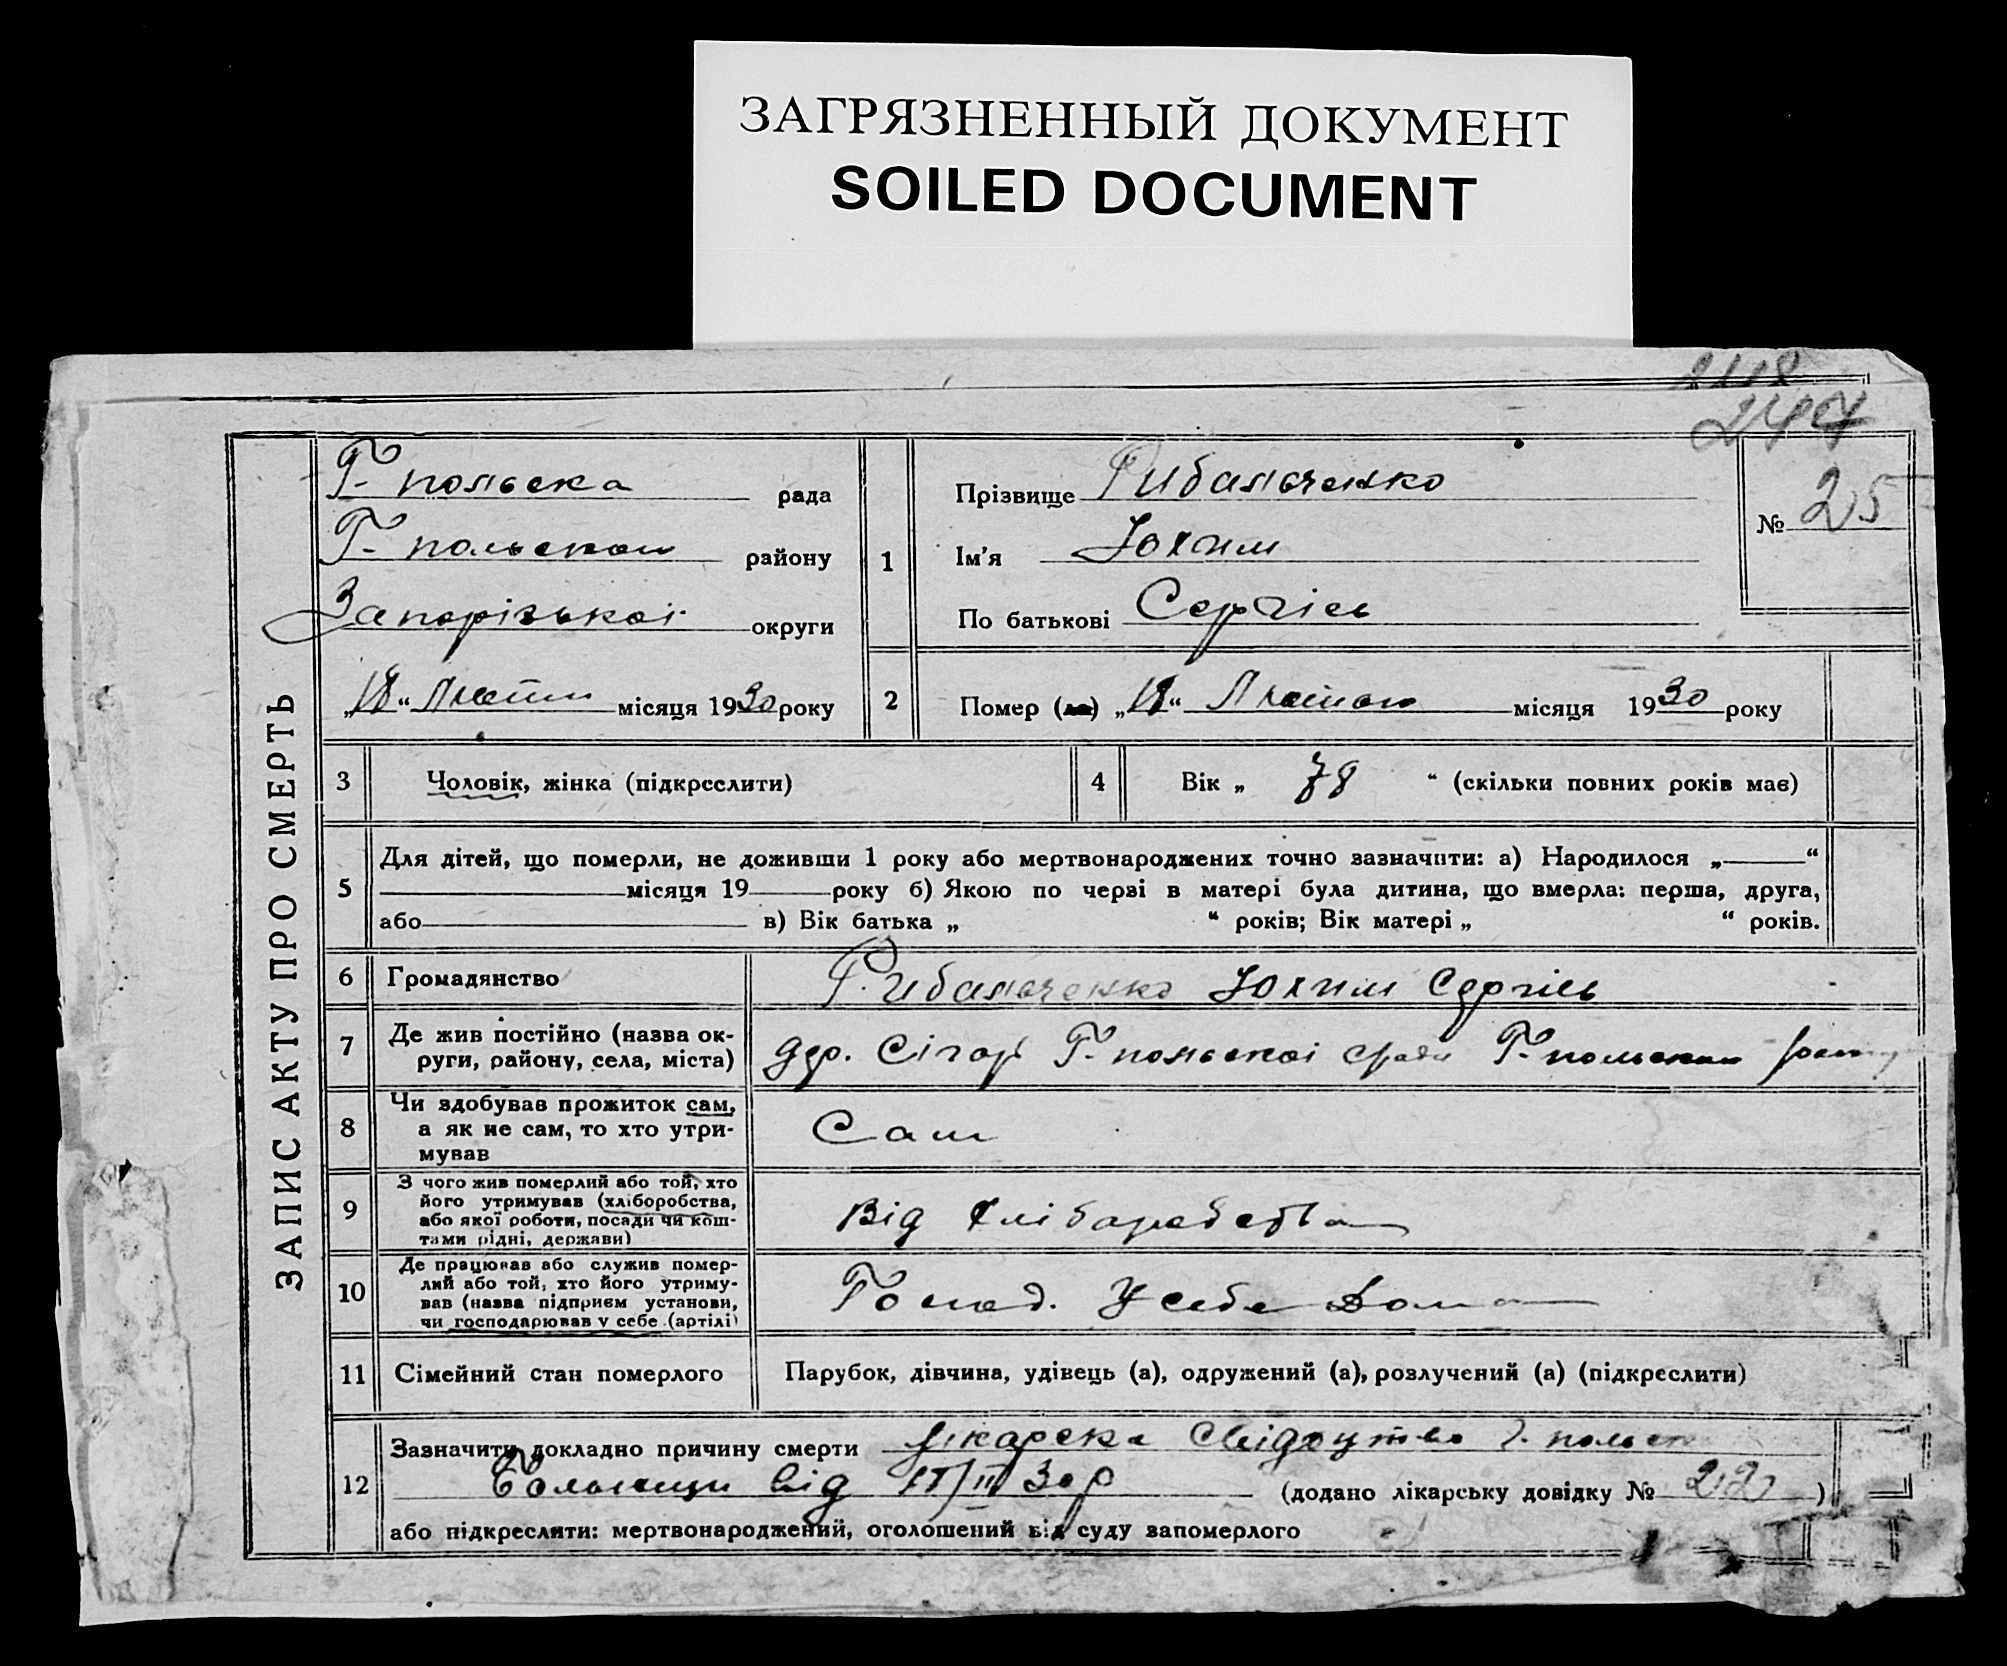 ЗАГРЯЗНЕННЫЙ ДОКУМЕНТ
SOILED DOCUMENT
247
№ 25
ЗАПИС АКТУ ПРО СМЕРТЬ
Г-польска рада
Г-польскои району
Запорізької округи
„18“ місяця 1930 року
1
Прізвище Рибальченко
Ім’я Юхим
По батькові Сергієв
2
Помер (ла) „18“ Лютого місяця 1930 року
3
Чоловік, жінка (підкреслити)
4
Вік „ 78 “ (скільки повних років має)
5
Для дітей, що померли, не доживши 1 року або мертвонароджених точно зазначити: а) Народилося „ “
місяця 19 року б) Якою по черзі в матері була дитина, що вмерла: перша, друга,
або в) Вік батька „ “ років; Вік матері „ “ років.
6
Громадянство
Рибальченко Юхим Сергієв
7
Де жив постійно (назва ок-
руги, району, села, міста)
Г-польскоі Ради Г-польскои
8
Чи здобував прожиток сам,
а як не сам, то хто утри-
мував
Сам
9
З чого жив померлий або той, хто
його утримував (хліборобства,
або якої роботи, посади чи кош-
тами рідні, держави)
Від хліборобства
10
Де працював або служив помер-
лий або той, хто його утриму-
вав (назва підприєм установи,
чи господарював у себе (артілі)
Господ. У себе Дома
11
Сімейний стан померлого
Парубок, дівчина, удівець (а), одружений (а), розлучений (а) (підкреслити)
12
Зазначити докладно причину смерти Лікарска Свідоцтво Г. польск
Больници від 30 р (додано лікарську довідку № )
або підкреслити: мертвонароджений, оголошений від суду запомерлого